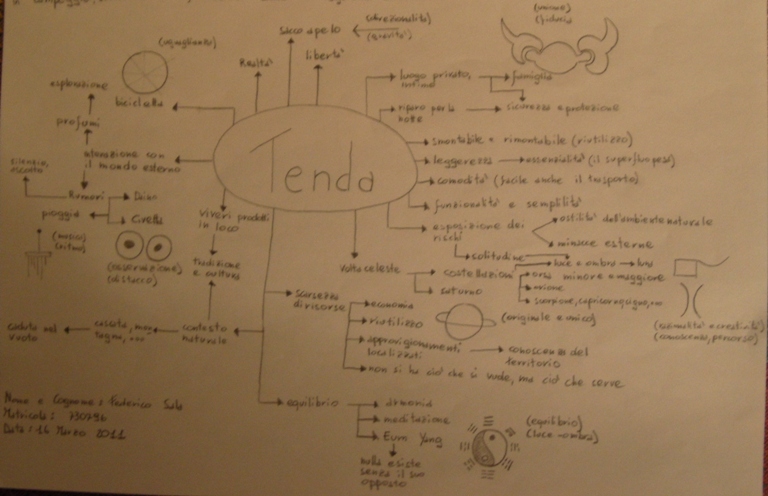 (uguaglianza)
sacco a pelo
Realtà
libertà
(unione)
(fiducia)
esplorazione
bicicletta
luogo privato,
famiglia
profumi
riparo per la
notte
sicurezza e protezione
Tenda
smontabile e rimontabile (riutilizzo)
silenzio,
ascolto
interazione con
il mondo esterno
leggerezza
essenzialità (il superfluo pesa)
comodità (facile anche il trasporto)
Rumori
Daino
funzionalità e semplicità
pioggia
Civetta
viveri prodotti
in loco
esposizione dei
rischi
ostilità dell'ambiente naturale
minacce esterne
(ritmo)
(osservazione)
(distacco)
solitudine
luce e ombra
luna
tradizione
e cultura
volta celeste
costellazioni
orsa minore e maggiore
orione
saturno
scorpione, capricorno, cigno, ...
scarsezza
di risorse
economia
riutilizzo
(originale e unico)
caduta nel
vuoto
contesto
naturale
approvigionamenti
localizzati
conoscenza del
territorio
non si ha ciò che si vuole, ma ciò che serve
Nome e Cognome: Federico Sala
Matricola: 730796
Data: 14 Marzo 2011
equilibrio
armonia
meditazione
(equilibrio)
(luce-ombra)
Yang
nulla esiste
senza il suo
opposto